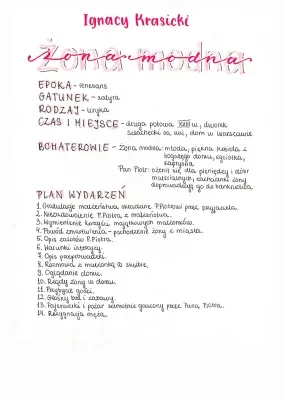 Ignacy Krasicki
żona modna
EPOKA - renesans
GATUNEK - satyra
RODZAJ - liryka
CZAS I MIEJSCE - druga połowa XVIII w., dworek
szlachecki na wsi, dom w Warszawie
BOHATEROWIE - żona modna: młoda, piękna kobieta z
bogatego domu, egoistka,
kapryśna
Pan Piotr: ożenił się dla pieniędzy i dóbr
materialnych, zachcianki żony
doprowadzają go do bankructwa
PLAN WYDARZEŃ
1. Gratulacje małżeństwa składane P. Piotrowi przez przyjaciela.
2. Niezadowolenie P. Piotra z małżeństwa.
3. Wymienienie korzyści majątkowych małżonków.
4. Powód zmartwienia - pochodzenie żony z miasta.
5. Opis zalotów P. Piotra.
6. Warunki intercyzy.
7. Opis przeprowadzki.
8. Rozmowa z małżonką o służbie.
9. Oglądanie domu.
10. Rządy żony w domu.
11. Przybycie gości.
12. Głośny bal i zabawy.
13. Fajerwerki i pożar samotnie gaszony przez Pana Piotra.
14. Rezygnacja męża.